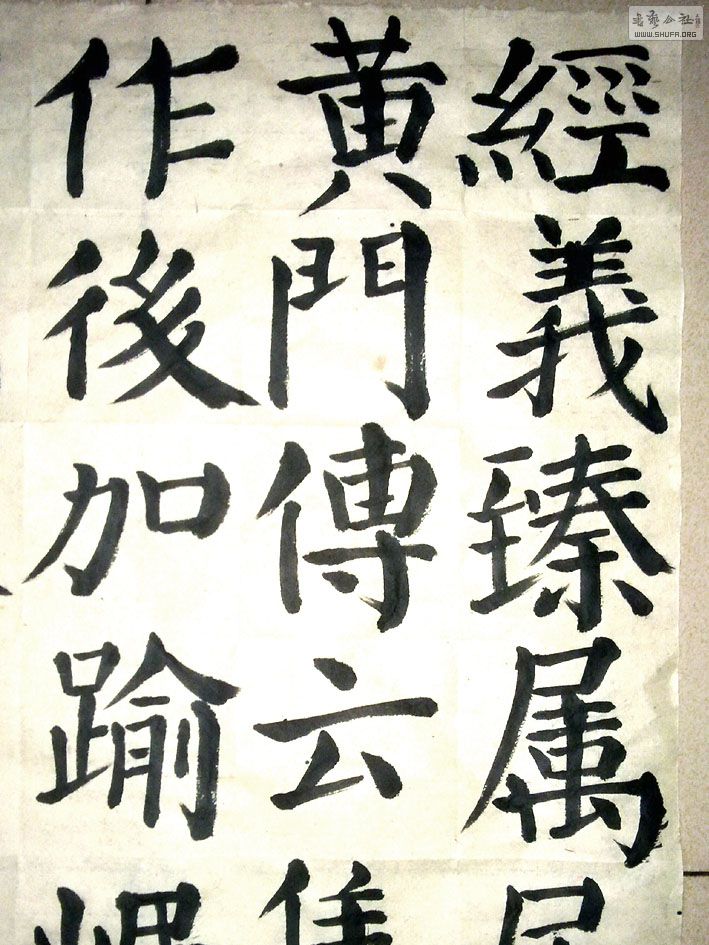 經義臻属
黄門傳云
作後加踰
書藝公社
WWW.SHUFA.ORG